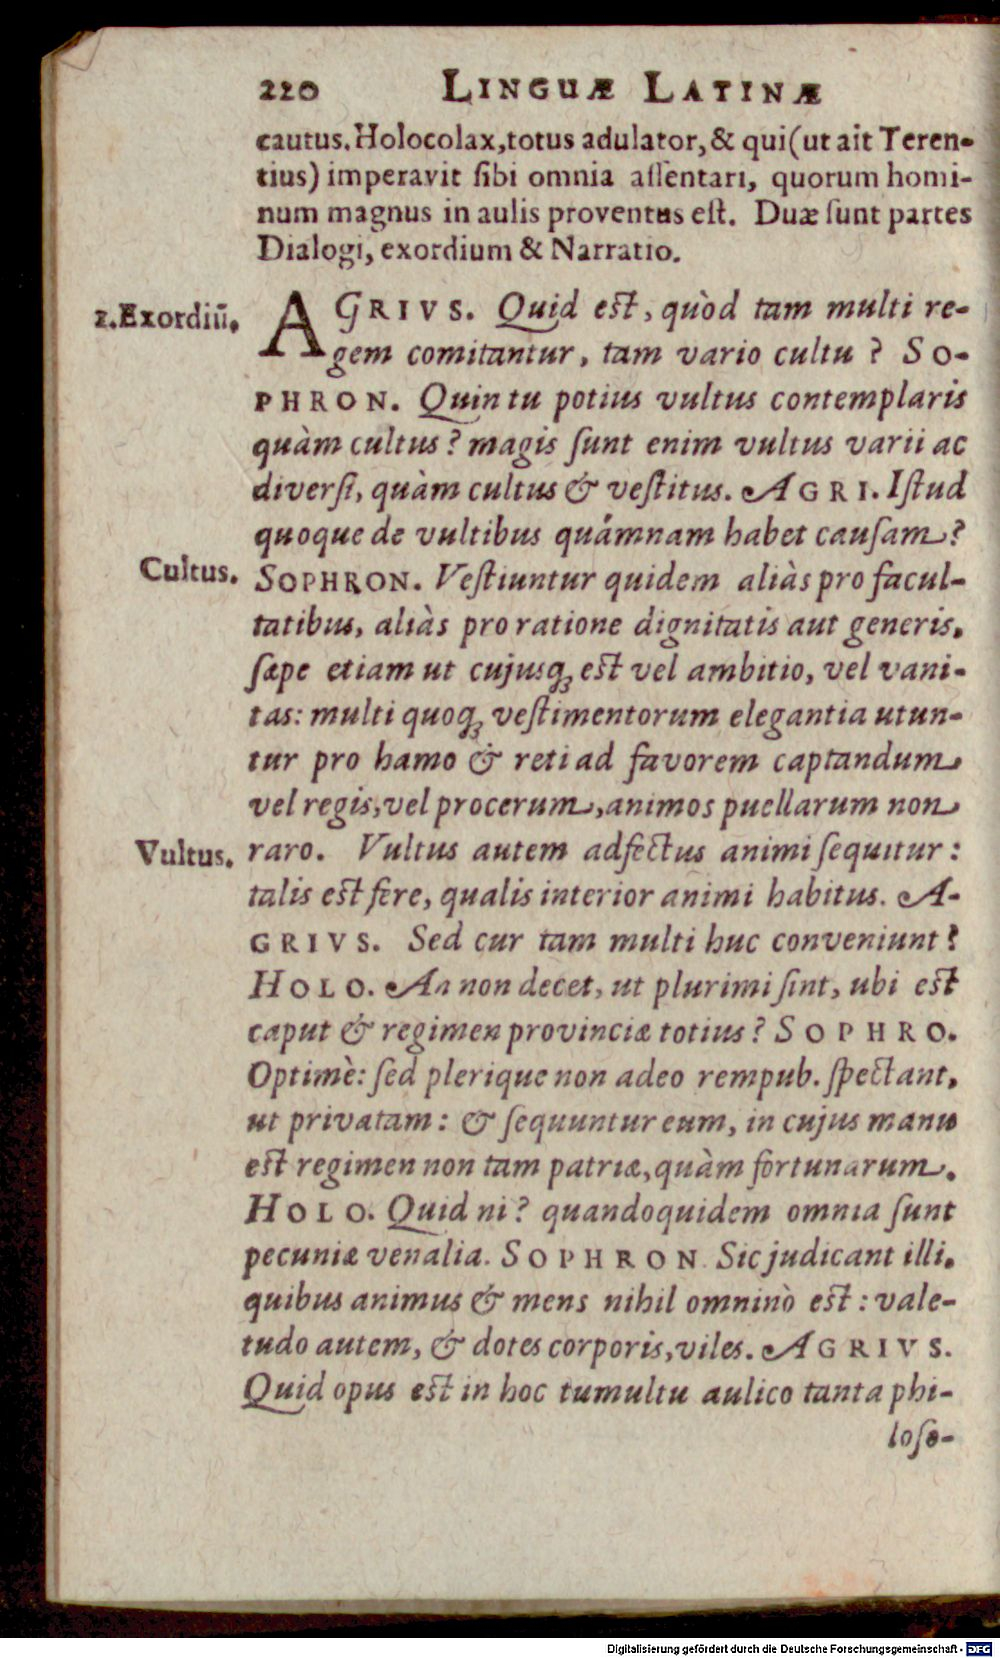 220 LINGUÆ LATINÆ
cautus. Holocolax, totus adulator, & qui (ut ait Teren-
tius) imperavit sibi omnia assentari, quorum homi-
num magnus in aulis proventus est. Duæ sunt partes
Dialogi, exordium & Narratio.
1. Exordiū.
AGRIVS. Quid est, quòd tam multi re-
gem comitantur, tam vario cultu? SO-
PHRON. Quin tu potius vultus contemplaris
quàm cultus? magis sunt enim vultus varii ac
diversi, quàm cultus & vestitus. AGRI. Istud
quoque de vultibus quámnam habet causam?
Cultus.
SOPHRON. Vestiuntur quidem aliàs pro facul-
tatibus, aliàs pro ratione dignitatis aut generis.
sæpe etiam ut cujusq́; est vel ambitio, vel vani-
tas: multi quoq́; vestimentorum elegantia utun-
tur pro hamo & reti ad favorem captandum
vel regis, vel procerum, animos puellarum non
Vultus.
raro. Vultus autem adfectus animi sequitur:
talis est fere, qualis interior animi habitus. A-
GRIVS. Sed cur tam multi huc conveniunt?
HOLO. An non decet, ut plurimi sint, ubi est
caput & regimen provinciæ totius? SOPHRO.
Optimè: sed plerique non adeo rempub. spectant,
ut privatam: & sequuntur eum, in cujus manu
est regimen non tam patriæ, quàm fortunarum.
HOLO. Quid ni? quandoquidem omnia sunt
pecuniæ venalia. SOPHRON. Sic judicant illi,
quibus animus & mens nihil omninò est: vale-
tudo autem, & dotes corporis, viles. AGRIVS.
Quid opus est in hoc tumultu aulico tanta phi-
loso-
Digitalisierung gefördert durch die Deutsche Forschungsgemeinschaft - DFG